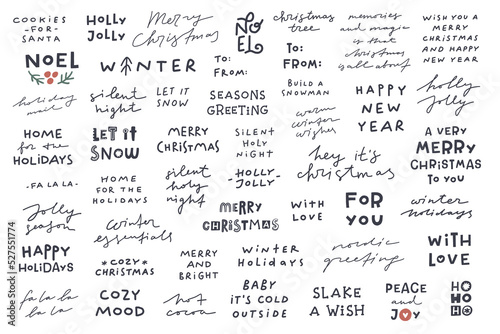 COOKIES
-FOR-
SANTA
HOLLY
JOLLY
Merry
Christmas
NO
EL
christmas
tree
memories
and magic
is that
christmas
is all about
WISH YOU A
MERRY
CHRISTMAS
AND HAPPY
NEW YEAR
NOEL
WINTER
TO:
FROM:
TO:
FROM:
holiday
mail
silent
night
LET IT
SNOW
SEASONS
GREETING
BUILD A
SNOWMAN
warm
winter
wishes
HAPPY
NEW
YEAR
holly
jolly
HOME
for the
HOLIDAYS
LET IT
SNOW
MERRY
CHRISTMAS
SILENT
HOLY
NIGHT
hey it's
christmas
A VERY
MERRY
CHRISTMAS
TO YOU
-FA LA LA-
HOME
FOR THE
HOLIDAYS
silent
holy
night
-HOLLY-
JOLLY-
Jolly
season
winter
essentials
MERRY
CHRISTMAS
WITH
LOVE
FOR
YOU
winter
holidays
HAPPY
HOLIDAYS
*COZY*
CHRISTMAS
MERRY
AND
BRIGHT
WINTER
HOLIDAYS
nordic
greeting
WITH
LOVE
fa la la
la la
COZY
MOOD
hot
cocoa
BABY
IT'S COLD
OUTSIDE
SLAKE
A WISH
PEACE
and
JOY
HO
HO
HO
Adobe Stock | #527551774